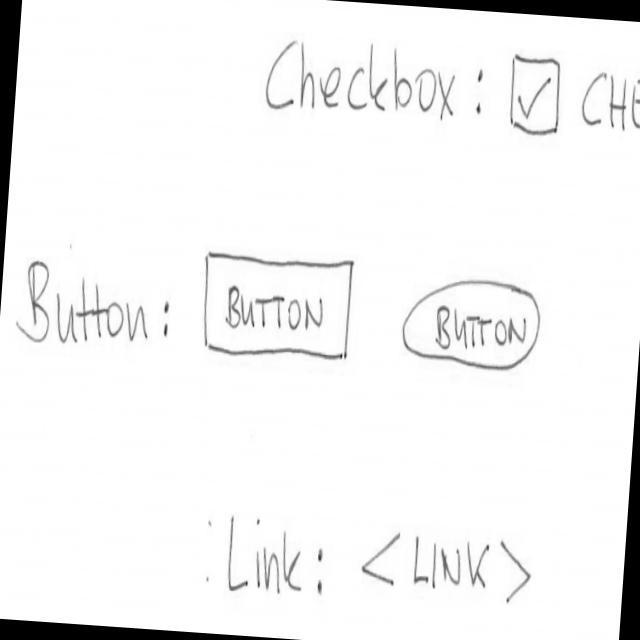 Checkbox: ☑ CHE
Button: BUTTON BUTTON
Link: <LINK>